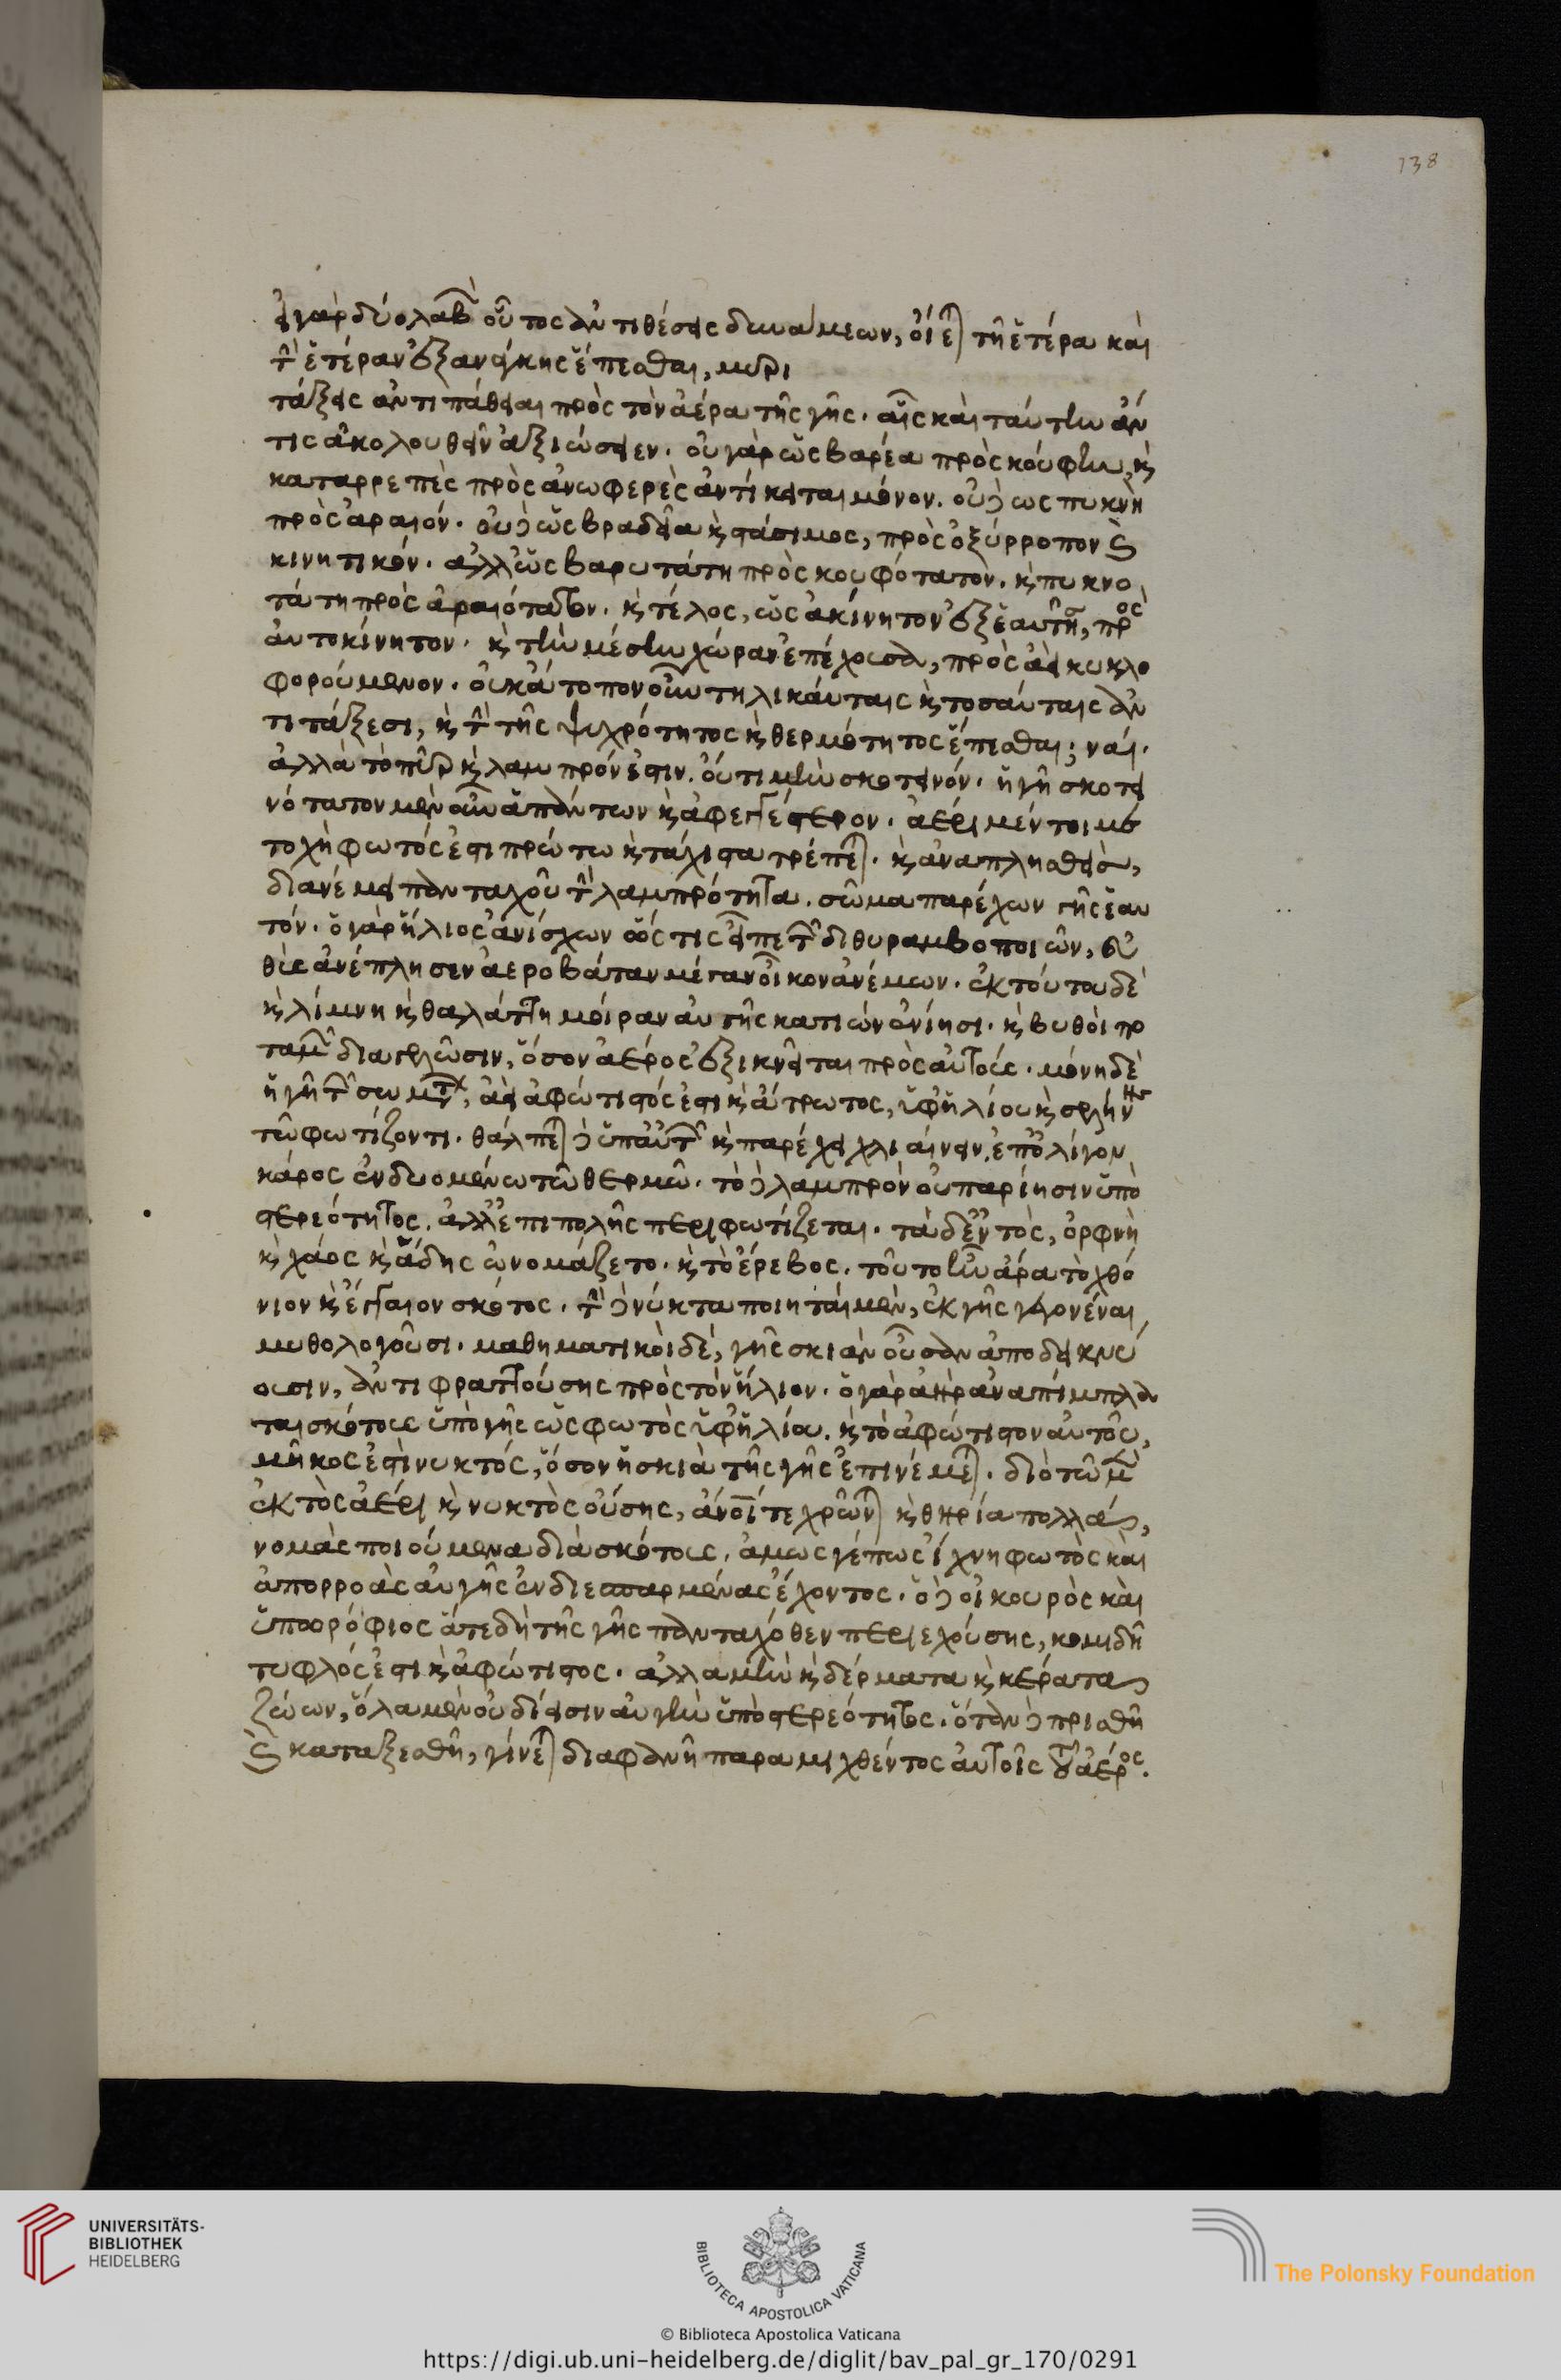 138
εἰ γὰρ δύο λαβὼν οὗτος ἀντιθέσεις δυνάμεων, οἴεται τῆ ἑτέρα καὶ
τὴν ἑτέραν ἐξ ἀνάγκης ἕπεσθαι, μυρι
τάξεις ἀντιπάθειαι πρὸς τὸν ἀέρα τῆς γῆς. αἷς καὶ ταύτην ἄν
τις ἀκολουθεῖν ἀξιώσειεν. οὐ γὰρ ὡς βαρέα πρὸς κούφην, καὶ
καταρρεπὲς πρὸς ἀνωφερὲς ἀντίκειται μόνον. οὐδὲ ὡς πυκνὴ
πρὸς ἀραιόν. οὐδὲ ὡς βραδεῖα καὶ στάσιμος, πρὸς ὀξύρροπον καὶ
κινητικόν. ἀλλ' ὡς βαρυτάτη πρὸς κουφότατον. καὶ πυκνο
τάτη πρὸς ἀραιότατον. καὶ τέλος, ὡς ἀκίνητον ἐξ ἑαυτῆς, πρὸς
αὐτοκίνητον. καὶ τὴν μέσην χώραν ἐπέχουσα, πρὸς ἀεὶ κυκλο
φορούμενον. οὐκ ἄτοπον οὖν τηλικαύταις καὶ τοσαύταις ἀν
τιτάξεσι, καὶ τὴν τῆς ψυχρότητος καὶ θερμότητος ἕπεσθαι; ναί.
ἀλλὰ τὸ πῦρ καὶ λαμπρόν ἐστιν. οὔτι μὴν σκοτεινόν. ἡ γῆ σκοτει
νότατον μὲν οὖν ἁπάντων καὶ ἀφεγγέστερον. ἀέρι μέντοι με
τοχὴ φωτός ἐστι πρώτω καὶ τάχιστα τρέπεται. καὶ ἀναπλησθεὶς,
διανέμει πανταχοῦ τὴν λαμπρότητα. σῶμα παρέχων τῆς ἑαυ
τόν. ὁ γὰρ ἥλιος ἀνίσχων ὥς τις εἶπε τῶν διθυραμβοποιῶν, εὐ
θὺς ἀνέπλησεν ἀεροβάταν μέγαν οἶκον ἀνέμων. ἐκ τούτου δὲ
καὶ λίμνη καὶ θαλάττη μοῖραν αὐγῆς κατιὼν ὀνίησι. καὶ βυθοὶ πο
ταμῶν διαγελῶσιν, ὅσον ἀέρος ἐξικνεῖται πρὸς αὐτούς. μόνη δὲ
ἡ γῆ τῶν σωμάτων, ἀεὶ ἀφώτιστός ἐστι καὶ ἄτρωτος, ὑφ' ἡλίου καὶ σελήνης
τῶ φωτίζοντι. θάλπεται δὲ ὑπ' αὐτῶν καὶ παρέχει χλιαίνειν, ἐπ' ὀλίγον
κάρος ἐνδυομένω τῶ θερμῶ. τὸ δὲ λαμπρὸν οὐ παρίησιν ὑπὸ
στερεότητος. ἀλλ' ἐπιπολῆς περιφωτίζεται. τὰ δ' ἐντὸς, ὀρφνὴ
καὶ χάος καὶ ἅδης ὠνομάζετο. καὶ τὸ ἔρεβος. τοῦτο ἦν ἄρα τὸ χθό
νιον καὶ ἔγγαιον σκότος. τὴν δὲ νύκτα ποιηταὶ μὲν, ἐκ γῆς γεγονέναι
μυθολογοῦσι. μαθηματικοὶ δὲ, γῆς σκιὰν οὖσαν ἀποδεικνύ
ουσιν, ἀντιφραττούσης πρὸς τὸν ἥλιον. ὁ γὰρ ἀὴρ ἀναπίμπλα
ται σκότους ὑπὸ γῆς ὡς φωτὸς ὑφ' ἡλίου. καὶ τὸ ἀφώτιστον αὐτοῦ,
μῆκος ἐστὶ νυκτός, ὅσον ἡ σκιὰ τῆς γῆς ἐπινέμεται. διὸ τῶ μὲν
ἐκτὸς ἀέρι καὶ νυκτὸς οὔσης, ἄνοι τε χρῶνται καὶ θηρία πολλὰ,
νομὰς ποιούμενα διὰ σκότους, ἄμως γέ πως ἴχνη φωτὸς καὶ
ἀπορροὰς αὐγῆς ἐνδιεσπαρμένας ἔχοντος. ὁ δὲ οἰκουρὸς καὶ
ὑπορόφιος ἅτε δὴ τῆς γῆς πανταχόθεν περιεχούσης, κομιδῆ
τυφλός ἐστι καὶ ἀφώτιστος. ἀλλὰ μὴν καὶ δέρματα καὶ κέρατα
ζώων, ὅλα μὲν οὐ δίεισιν αὐγὴν ὑπὸ στερεότητος. ὅταν δὲ πρισθῆ
καὶ καταξεσθῆ, γίνεται διαφανῆ παραμιχθέντος αὐτοῖς τοῦ ἀέρος.
UNIVERSITÄTS-
BIBLIOTHEK
HEIDELBERG
BIBLIOTECA APOSTOLICA VATICANA
The Polonsky Foundation
© Biblioteca Apostolica Vaticana
https://digi.ub.uni-heidelberg.de/diglit/bav_pal_gr_170/0291